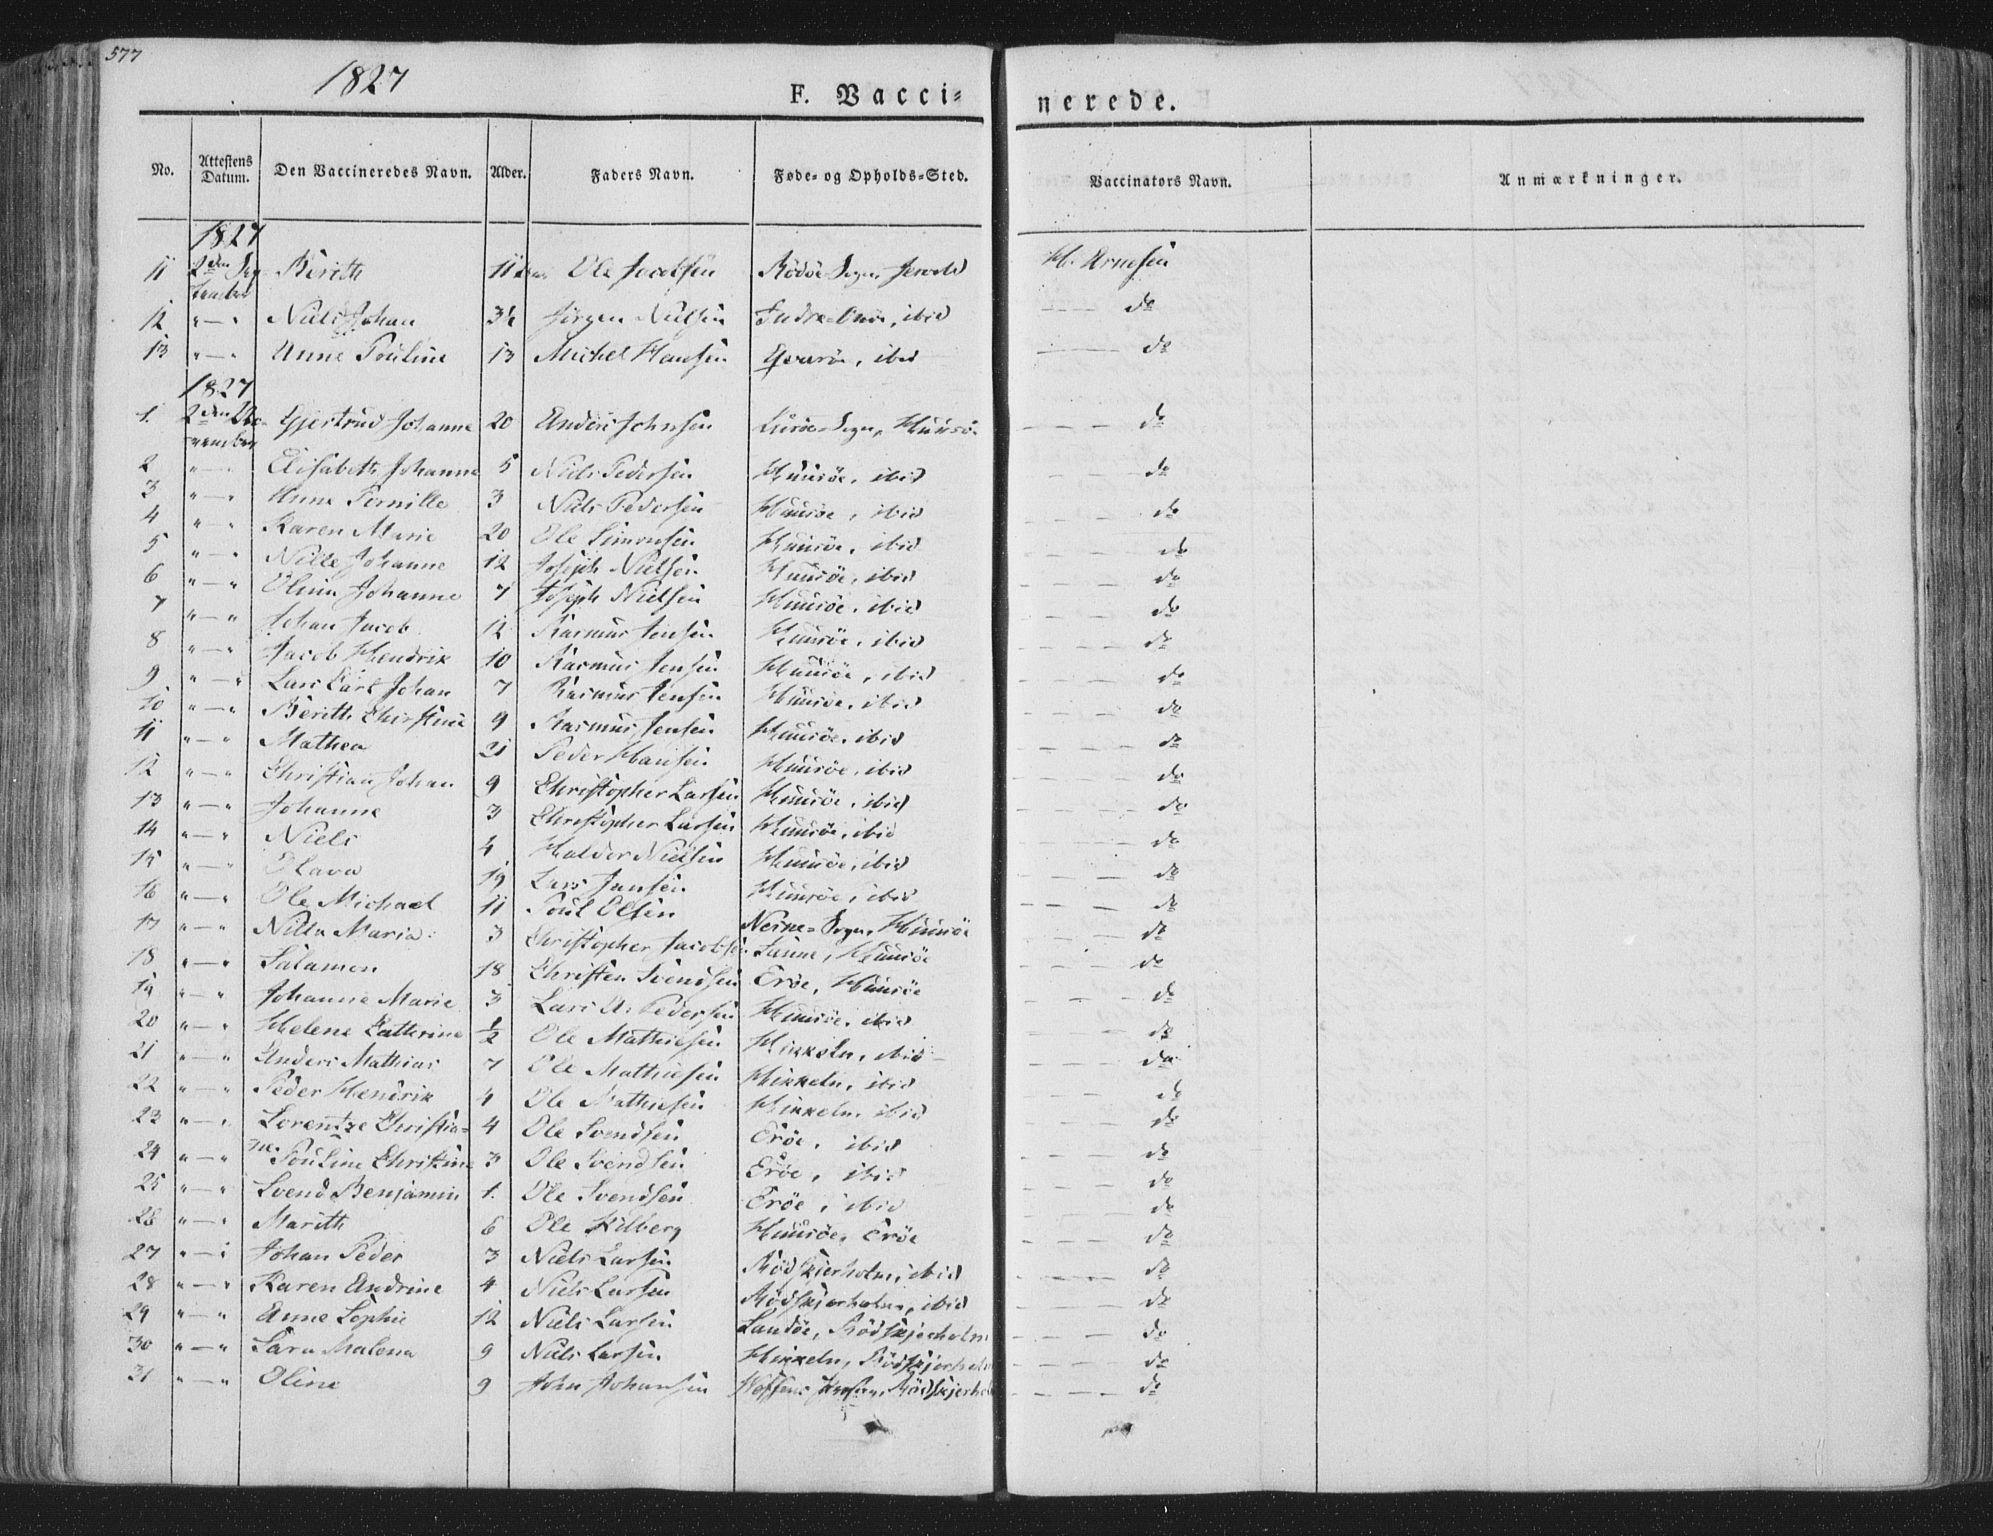 577
1827
F. Vacci=nerede.
No. Attestens Datum. Den Vaccineredes Navn. Alder. Faders Navn. Føde- og Opholds-Sted. Vaccinators Navn. Anmærkninger.
1827
11 2den Sep- Berith 11 Ole Jacobsen Rödöe Sogn H. Arnesen
tember
12 " — " Niels Johan 3½ Jörgen Nielsen Indre , ibid — — — do
13 " — " Anne Pouline 13 Michel Hansen , ibid — — — do
1827
1. 2den No- Gjertrud Johanne 20 Anders Johnsen Luröe-Sogn, Huusöe — — — do
vember
2 " — " Elisabeth Johanne 5 Niels Pedersen Huusöe, ibid — — — do
3 " — " Anne Pernille 3 Niels Pedersen Huusöe, ibid — — — do
4 " — " Karen Marie 20 Ole Simonsen Huusöe, ibid — — — do
5 " — " Nille Johanne 12 Joseph Nielsen Huusöe, ibid — — — do
6 " — " Olina Johanne 7 Joseph Nielsen Huusöe, ibid — — — do
7 " — " Johan Jacob 12 Rasmus Jensen Huusöe, ibid — — — do
8 " — " Jacob Hendrik 10 Rasmus Jensen Huusöe, ibid — — — do
9 " — " Lars Carl Johan 7 Rasmus Jensen Huusöe, ibid — — — do
10 " — " Berith Christine 9 Rasmus Jensen Huusöe, ibid — — — do
11 " — " Mathea 21 Peder Hansen Huusöe, ibid — — — do
12 " — " Christian Johan 9 Christopher Larsen Huusöe, ibid — — — do
13 " — " Johanne 3 Christopher Larsen Huusöe, ibid — — — do
14 " — " Niels 4 Halder Nielsen Huusöe, ibid — — — do
15 " — " Olava 19 Lars Jensen Huusöe, ibid — — — do
16 " — " Ole Michael 11 Poul Olsen Nesne-Sogn, Huusöe — — — do
17 " — " Nilla Maria 3 Christopher Jacobsen , Huusöe — — — do
18 " — " Salamon 18 Christen Svendsen Eröe, Huusöe — — — do
19 " — " Johanne Marie 3 Lars A: Pedersen Huusöe, ibid — — — do
20 " — " Helene Cathrine ½ Ole Mathiesen Hikkeln, ibid — — — do
21 " — " Anders Mathias 7 Ole Mathiesen Hikkeln, ibid — — — do
22 " — " Peder Hendrik 4 Ole Mathiesen Hikkeln, ibid — — — do
23 " — " Lorentze Christia= 4 Ole Svendsen Eröe, ibid — — — do
ne
24 " — " Pouline Christine 3 Ole Svendsen Eröe, ibid — — — do
25 " — " Svend Benjamin 1. Ole Svendsen Eröe, ibid — — — do
26 " — " Marith 6 Ole Huusöe, Eröe — — — do
27 " — " Johan Peder 3 Niels Larsen Rödskjerholm, ibid — — — do
28 " — " Karen Andrine 4 Niels Larsen Rödskjerholm, ibid — — — do
29 " — " Anne Sophie 12 Niels Larsen Sandöe, Rödskjerholm — — — do
30 " — " Sara Malena 9 Niels Larsen Hikkeln, Rödskjerholm — — — do
31 " — " Oline 9 John Johansen Rödskjerhol — — — do